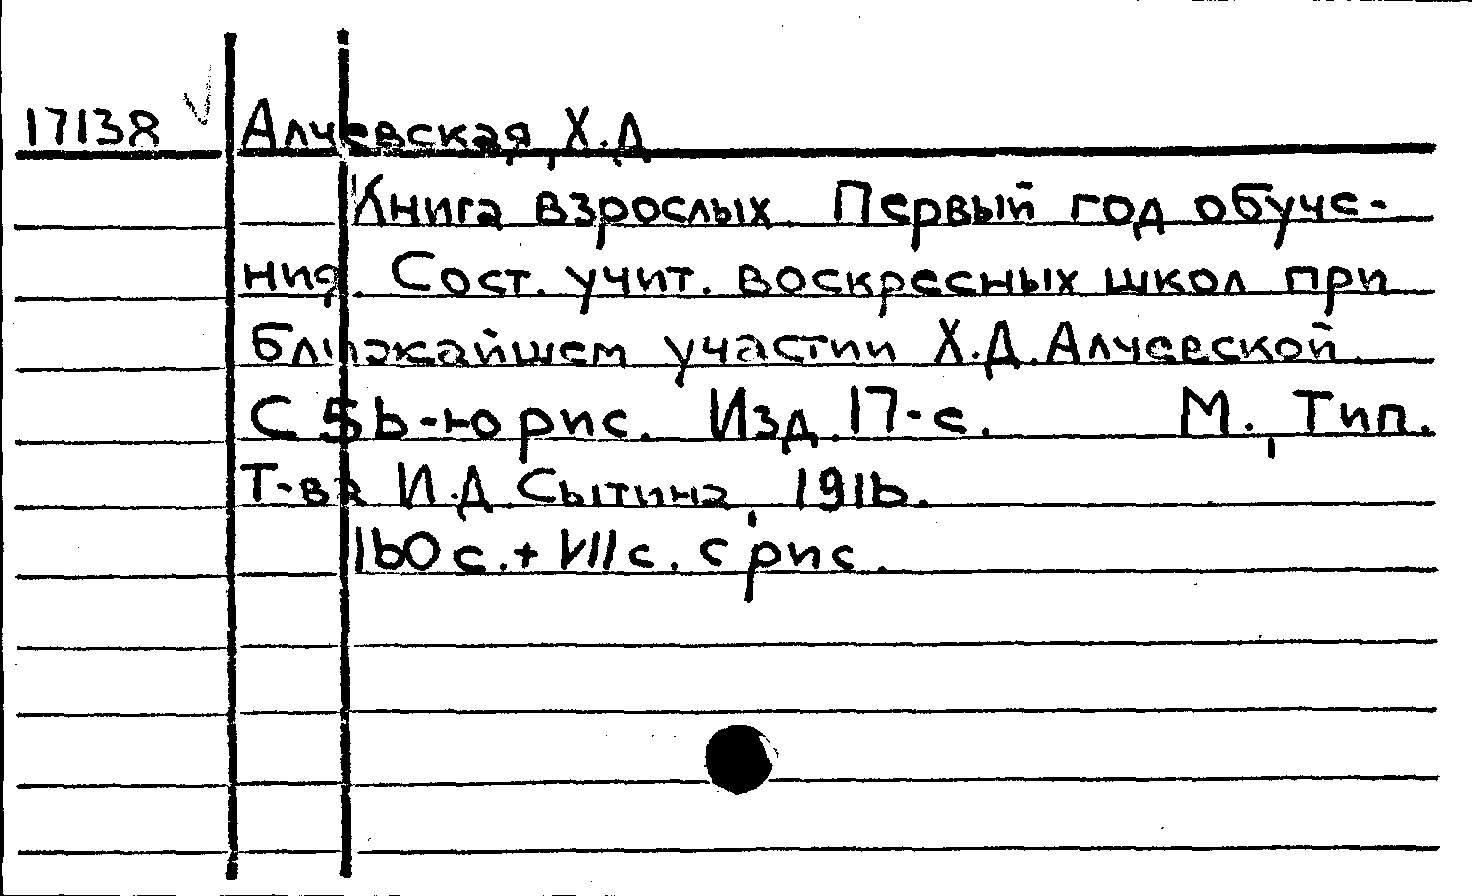 17138 Алчевская, Х.Д
Книга взрослых. Первый год обуче-
ния. Сост. учит. воскресных школ при
ближайшем участии Х.Д. Алчевской
С 56-ю рис. Изд. 17-е. М., Тип.
Т-ва И.Д. Сытина, 1916.
160 с. + VII с. с рис.